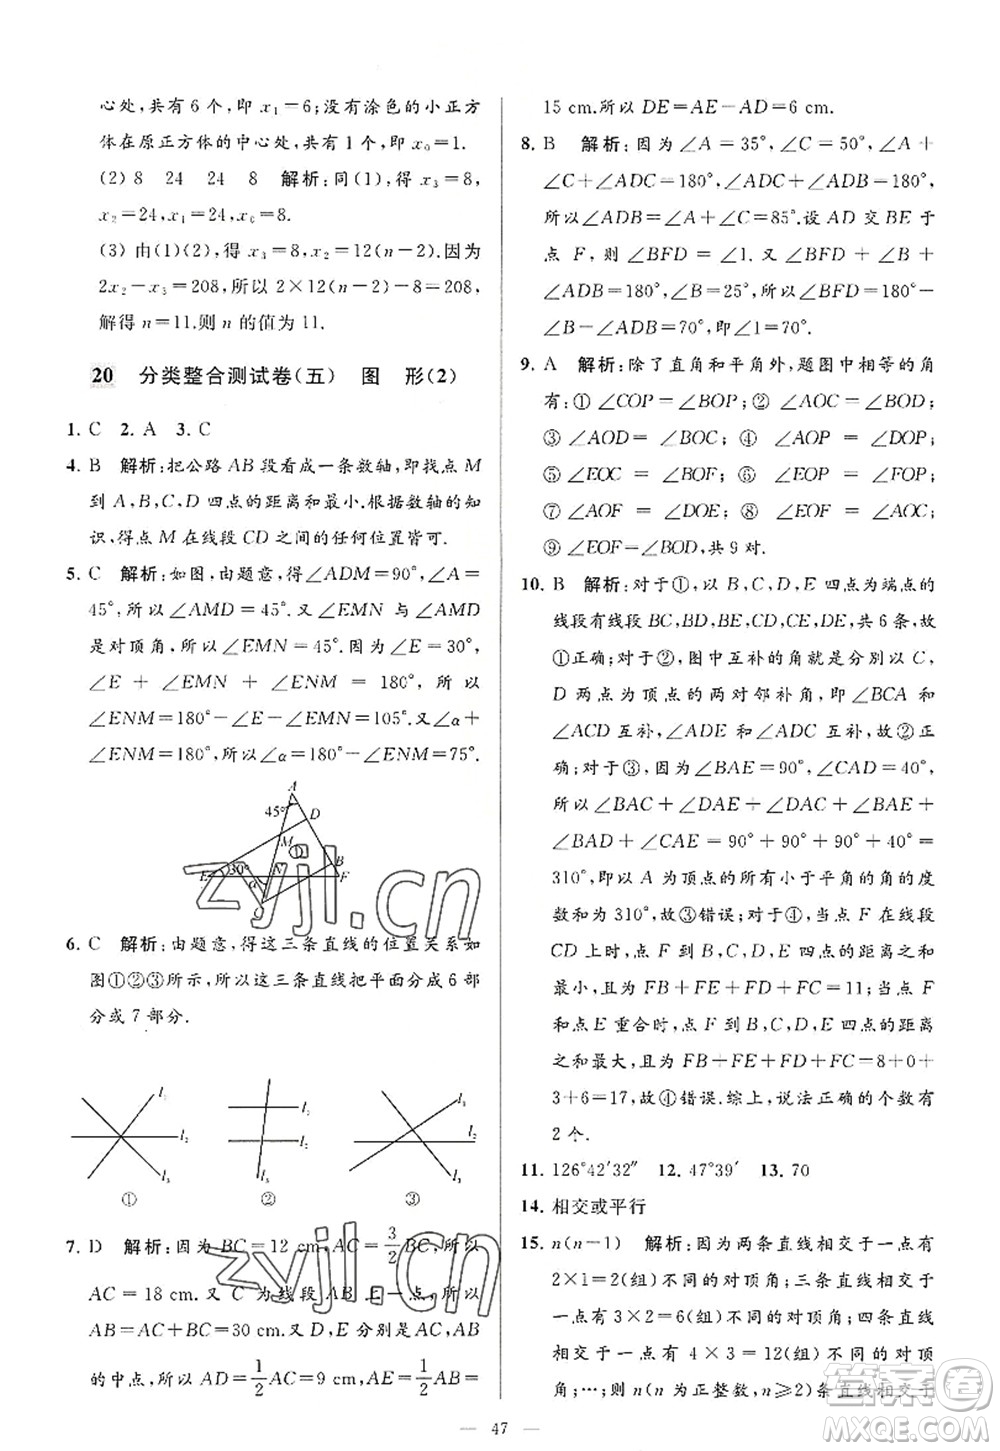 心处,共有6个,即x₁=6;没有涂色的小正方
体在原正方体的中心处,共有1个,即x₀=1.
(2) 8 24 24 8 解析:同(1),得x₃=8,
x₂=24,x₁=24,x₀=8.
(3) 由(1)(2),得x₃=8,x₂=12(n-2).因为
2x₂-x₃=208,所以2×12(n-2)-8=208,
解得n=11.则n的值为11.
20 分类整合测试卷(五) 图 形(2)
1. C 2. A 3. C
4. B 解析:把公路AB段看成一条数轴,即找点M
到A,B,C,D四点的距离和最小.根据数轴的知
识,得点M在线段CD之间的任何位置皆可.
5. C 解析:如图,由题意,得∠ADM=90°,∠A=
45°,所以∠AMD=45°.又∠EMN与∠AMD
是对顶角,所以∠EMN=45°.因为∠E=30°,
∠E+∠EMN+∠ENM=180°,所以
∠ENM=180°-∠E-∠EMN=105°.又∠α+
∠ENM=180°,所以∠α=180°-∠ENM=75°.
A
45°
D
M
B
E 30° N F
α
C
6. C 解析:由题意,得这三条直线的位置关系如
图①②③所示,所以这三条直线把平面分成6部
分或7部分.
l₁ l₁ l₁
l₂ l₂ l₂
l₃ l₃ l₃
① ② ③
7. D 解析:因为BC=12 cm,AC=3/2BC,所以
AC=18 cm.又C为线段AB上一点,所以
AB=AC+BC=30 cm.因为D,E分别为AC,AB
的中点,所以AD=1/2AC=9 cm,AE=1/2AB=
15 cm.所以DE=AE-AD=6 cm.
8. B 解析:因为∠A=35°,∠C=50°,∠A+
∠C+∠ADC=180°,∠ADB+∠ADC=180°,
所以∠ADB=∠A+∠C=85°.设AD交BE于
点F,则∠BFD=∠1.因为∠B+∠BFD+
∠ADB=180°,∠B=25°,所以∠BFD=180°-
∠B-∠ADB=70°,即∠1=70°.
9. A 解析:除了直角和平角外,题图中相等的角
有:①∠COP=∠BOP;②∠AOC=∠BOD;
③∠AOD=∠BOC;④∠AOP=∠DOP;
⑤∠EOC=∠BOF;⑥∠EOP=∠FOP;
⑦∠AOF=∠DOE;⑧∠EOF=∠AOC;
⑨∠EOF=∠BOD,共9对.
10. B 解析:对于①,以B,C,D,E四点为端点的
线段有线段BC,BD,BE,CD,CE,DE,共6条,故
①正确;对于②,图中互补的角就是分别以C,
D两点为顶点的两对邻补角,即∠BCA和
∠ACD互补,∠ADE和∠ADC互补,故②正
确;对于③,因为∠BAE=90°,∠CAD=40°,
所以∠BAC+∠DAE+∠BAE+∠CAD+
∠BAD+∠CAE=90°+90°+90°+40°=
310°,即以A为顶点的所有小于平角的角的度
数和为310°,故③错误;对于④,当点F在线段
CD上时,点F到B,C,D,E四点的距离之和
最小,且为FB+FE+FD+FC=11;当点F
和点E重合时,点F到B,C,D,E四点的距离
之和最大,且为FB+FE+FD+FC=8+0+
3+6=17,故④错误.综上,说法正确的个数有
2个.
11. 126°42′32″ 12. 47°39′ 13. 70
14. 相交或平行
15. n(n-1) 解析:因为两条直线相交于一点有
2×1=2(组)不同的对顶角;三条直线相交于
一点有3×2=6(组)不同的对顶角;四条直线
相交于一点有4×3=12(组)不同的对顶
角;…;则n(n为正整数,n≥2)条直线相交于
— 47 —
zyjl.cn
zyjl.cn
答案圈
MXQE.COM